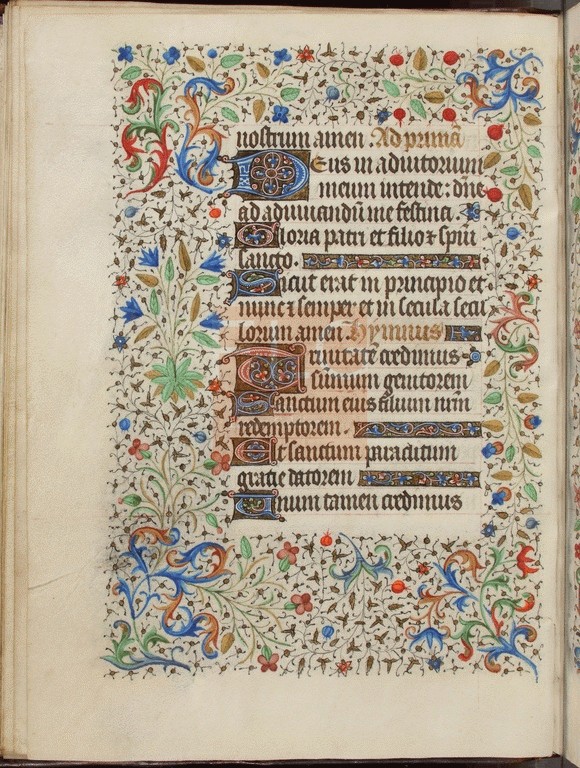 nostrum amen. Ad primā
Deus in adiutorium
meum intende: dñe
ad adiuuandū me festina.
Gloria patri et filio ⁊ spūi
sancto.
Sicut erat in principio et
nunc ⁊ semper et in secula secu
lorum amen. Hymnus
Trinitatē credimus
summum genitorem
Sanctum eius filium nr̄m
redemptorem.
Et sanctum paraclitum
gratie datorem
Unum tamen credimus